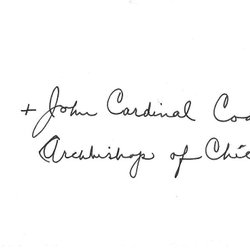 + John Cardinal Coo
Archbishop of Chi